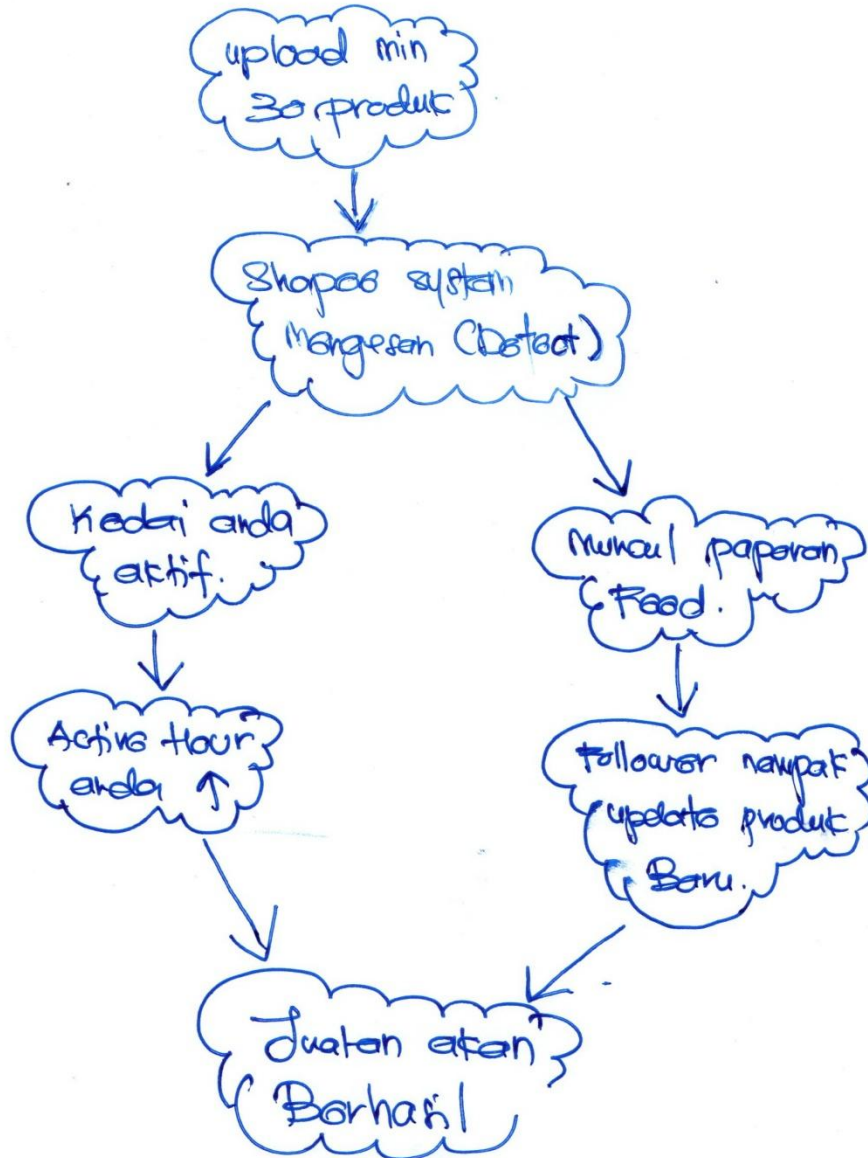 upload min
30 produk
Shopee system
Mengesan (Detect)
Kedai anda
aktif.
Muncul paparan
Feed.
Active Hour
anda ↑
Follower nampak
update produk
Baru.
Jualan akan
Berhasil